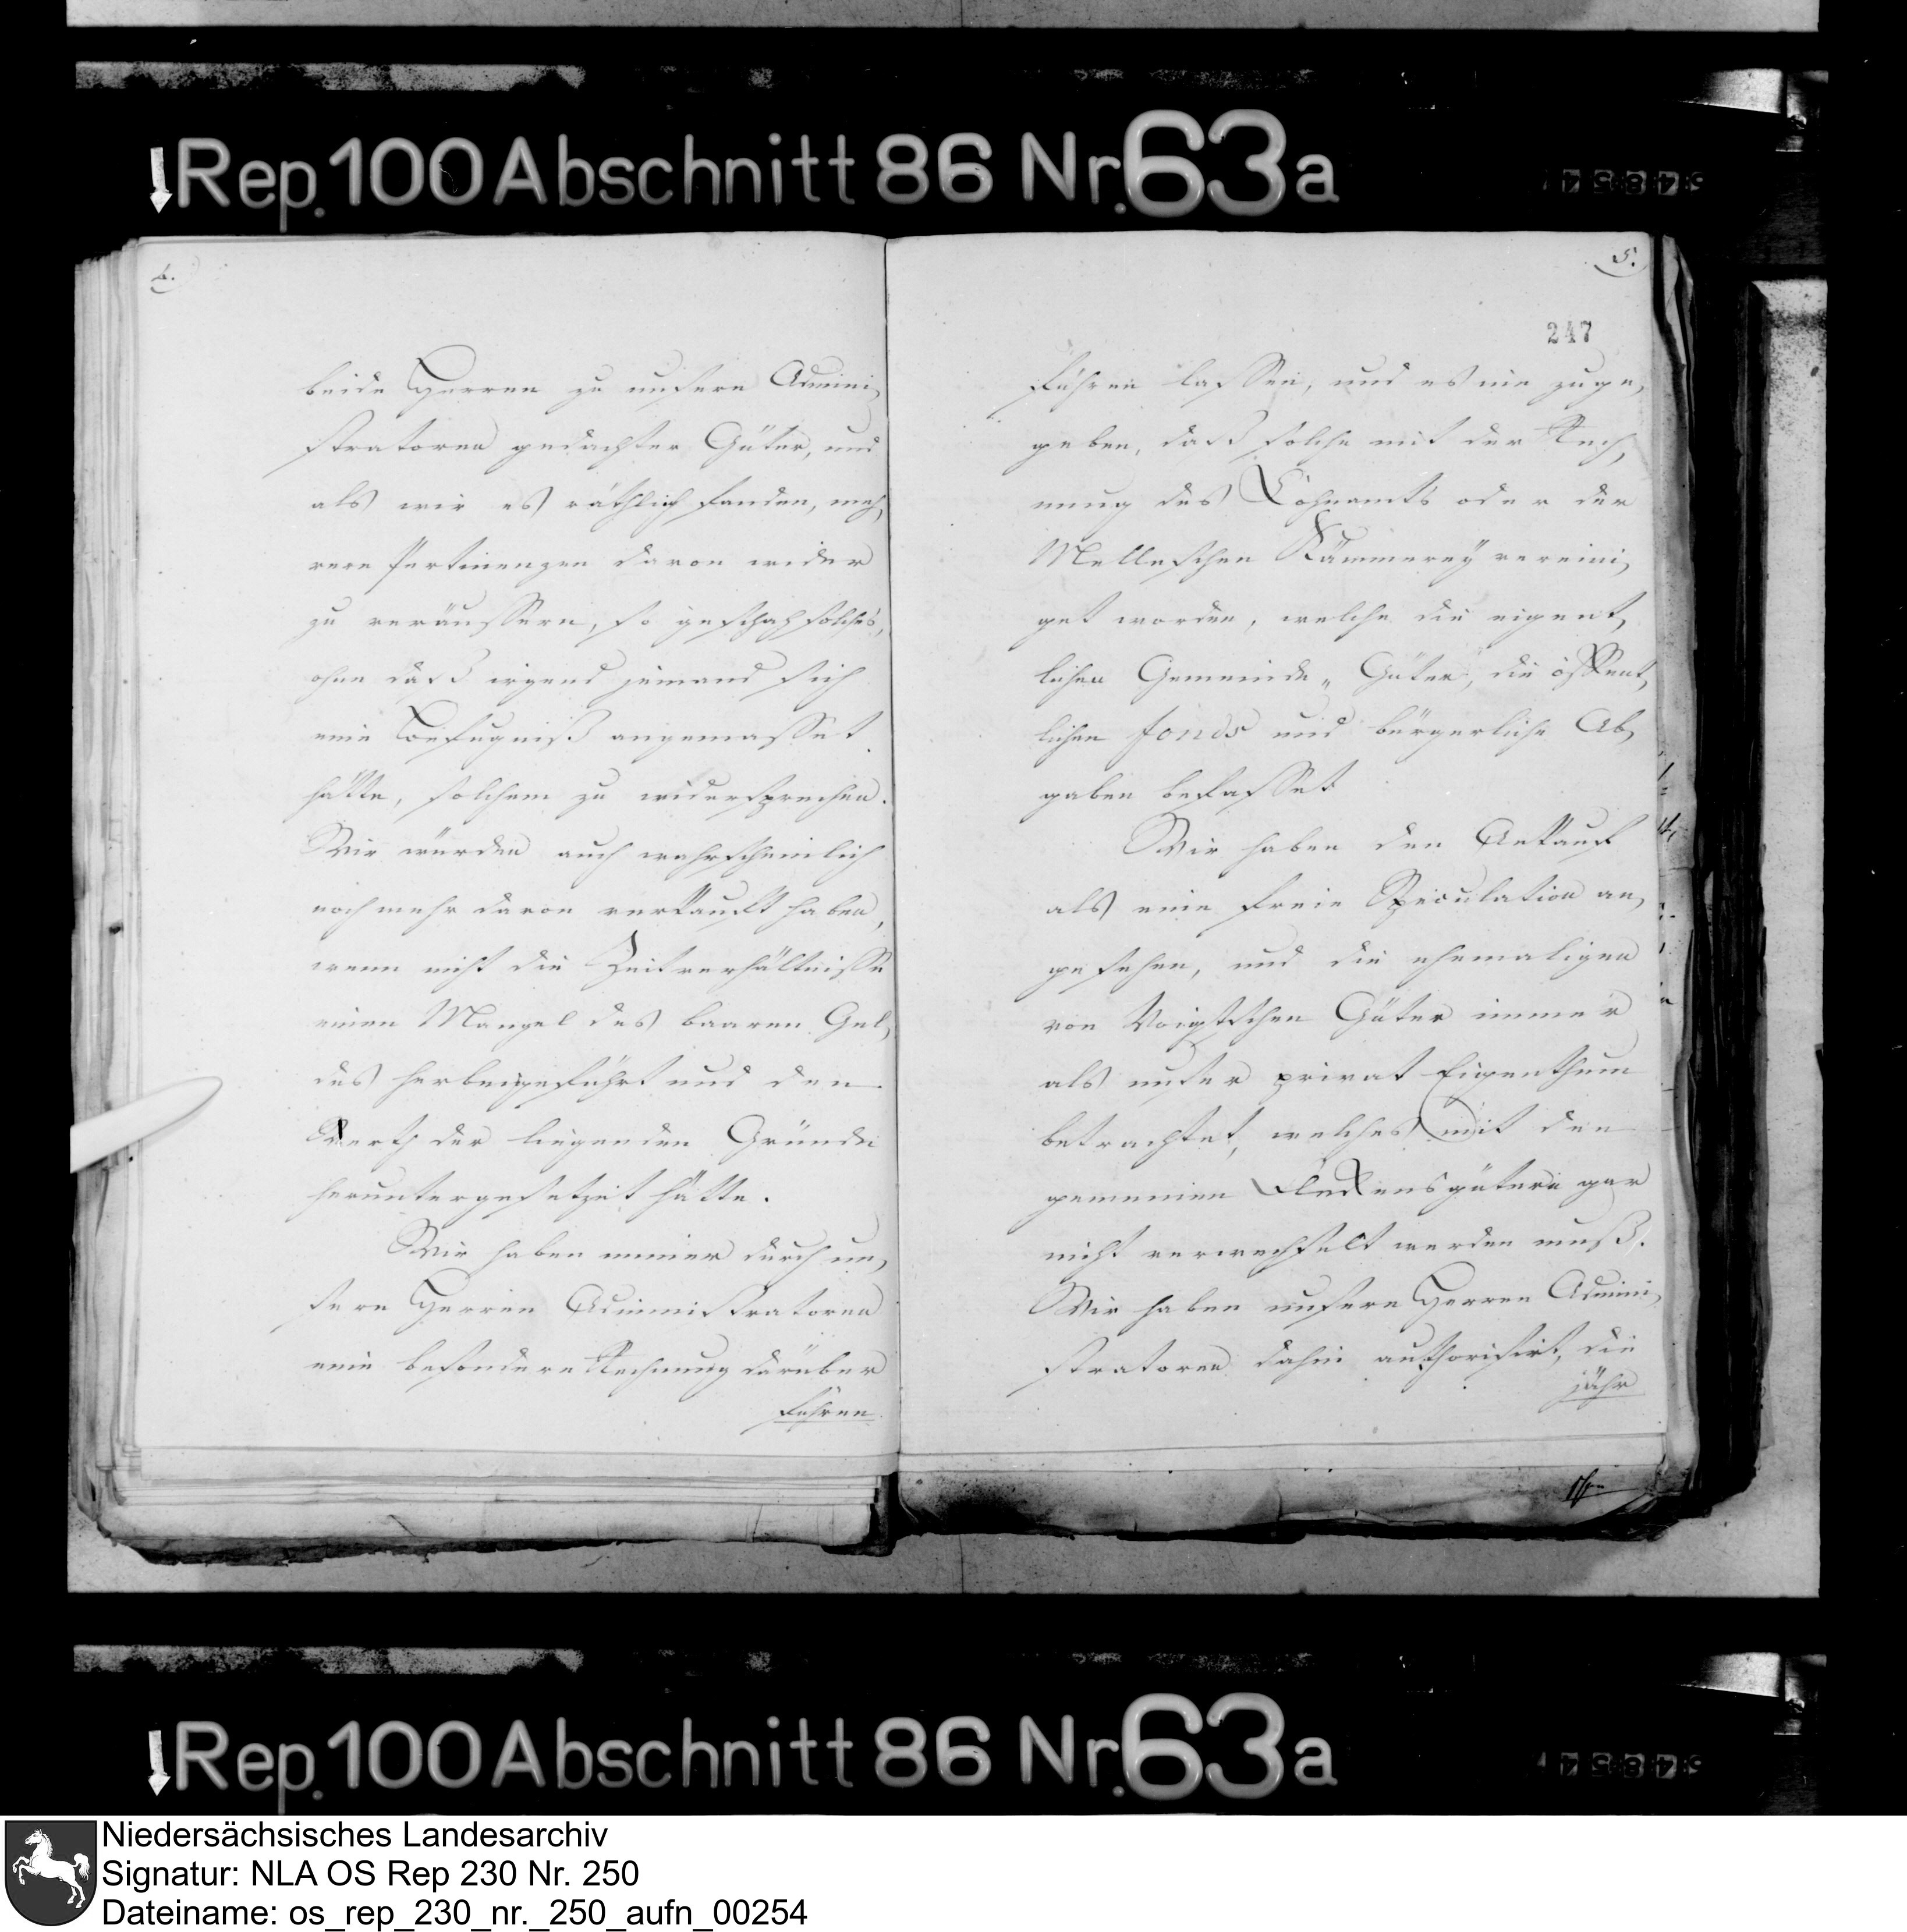 Rep. 100 Abschnitt 86 Nr. 63a
4.
beide Herren zu unsern Admini,
stratoren gedachter Güter, und
als wir es räthlich fanden, meh,
rere Pertinenzen davon wider
zu veräussern, so geschah solches,
ohne daß irgend jemand sich
eine Befugniß angemasset
hätte, solchem zu widersprechen.
Wir würden auch wahrscheinlich
noch mehr davon verkauft haben,
wenn nicht die Zeitverhältnisse
einen Mangel des baaren Gel,
des herbeigeführt und den
Werth der liegenden Gründe
heruntergesetzet hätte.
Wir haben immer durch un,
sere Herren Administratoren
eine besondere Rechnung darüber
führen
5.
247
führen lassen, und es nie zuge,
geben, daß solche mit der Rech,
nung des Lohnamts oder der
Melleschen Kämmerey vereini,
get worden, welche die eigent,
lichen Gemeinde„ Güter, die öffent,
lichen fonds und bürgerliche Ab,
gaben befasset
Wir haben den Ankauf
als eine freie Speculation an,
gesehen, und die ehemaligen
von Voigtschen Güter immer
als unser privat Eigenthum
betrachtet, welches mit den
gemeinen Fleckensgütern gar
nicht verwechselt werden muß.
Wir haben unsere Herren Admini,
stratoren dahin authorisirt, die
jähr
Rep. 100 Abschnitt 86 Nr. 63a
Niedersächsisches Landesarchiv
Signatur: NLA OS Rep 230 Nr. 250
Dateiname: os_rep_230_nr._250_aufn_00254